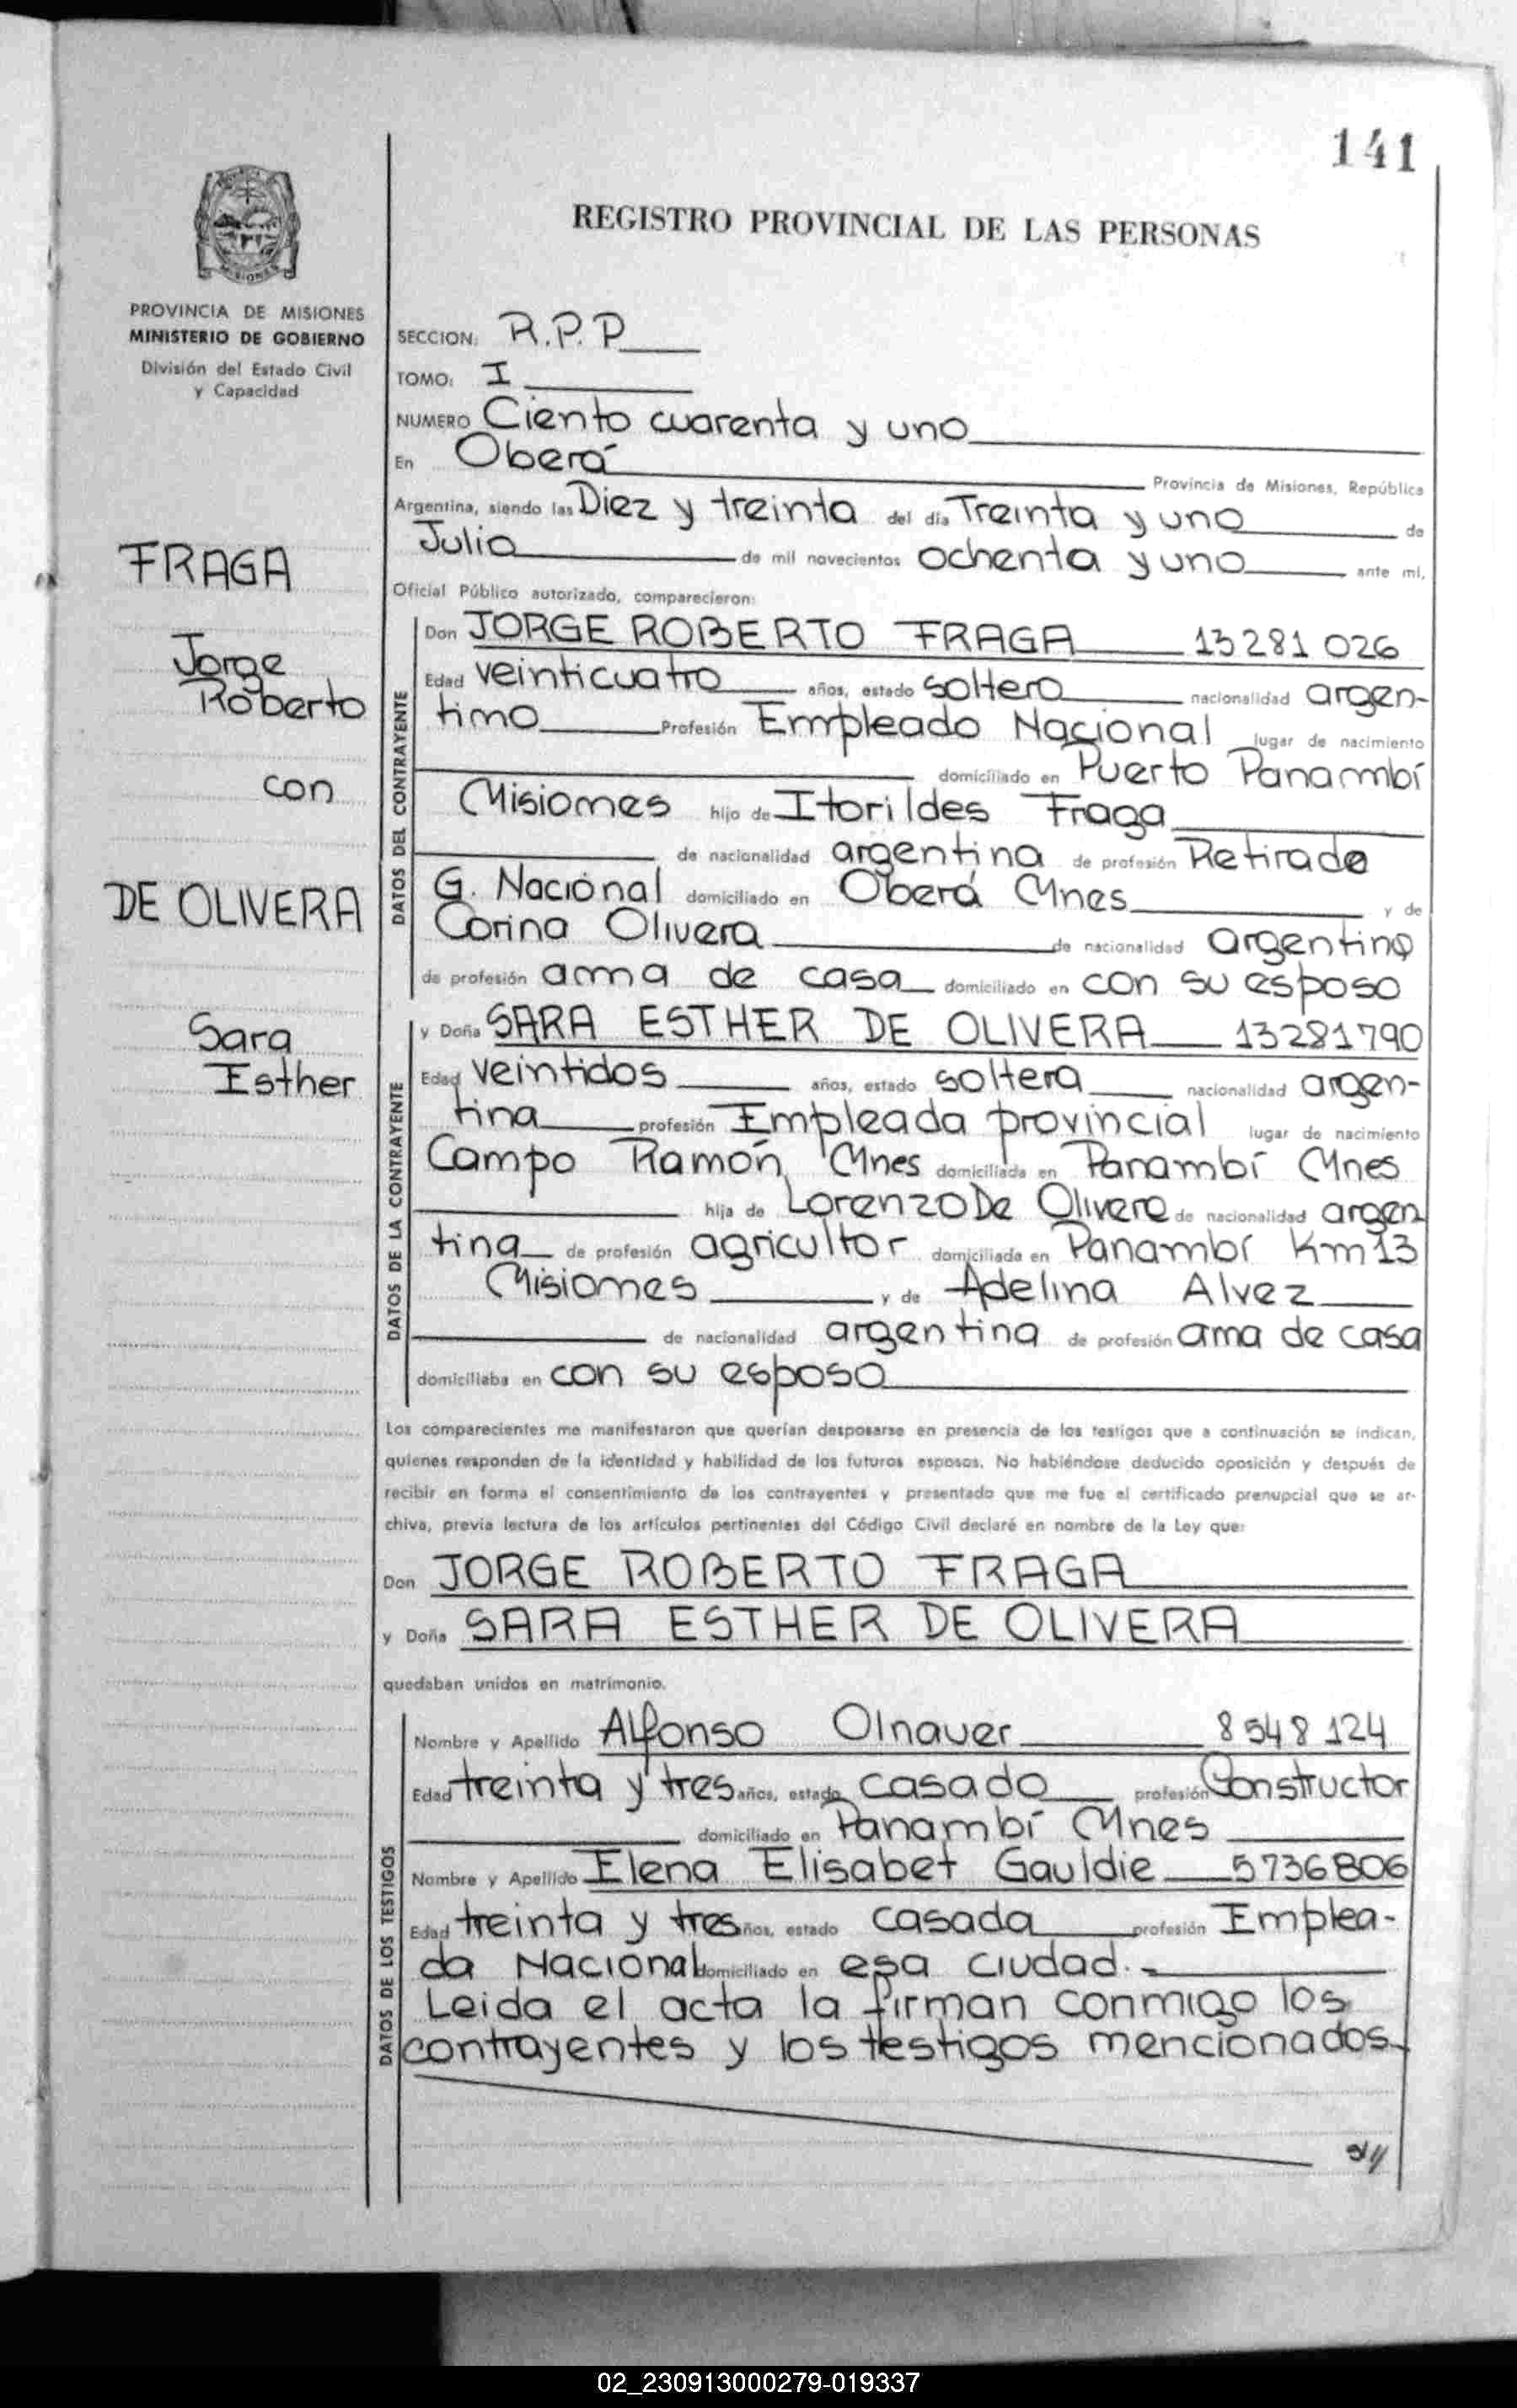 141
REGISTRO PROVINCIAL DE LAS PERSONAS
MISIONES
PROVINCIA DE MISIONES
MINISTERIO DE GOBIERNO
División del Estado Civil
y Capacidad
FRAGA
Jorge
Roberto
con
DE OLIVERA
Sara
Esther
SECCION: R.P.P
TOMO: I
NUMERO Ciento cuarenta y uno
En Oberá
Provincia de Misiones, República
Argentina, siendo las Diez y treinta del día Treinta y uno de
Julio de mil novecientos ochenta y uno ante mí,
Oficial Público autorizado, comparecieron:
DATOS DEL CONTRAYENTE
Don JORGE ROBERTO FRAGA 13281026
Edad veinticuatro años, estado soltero nacionalidad argen-
tino Profesión Empleado Nacional lugar de nacimiento
domiciliado en Puerto Panambí
Misiones hijo de Itorildes Fraga
de nacionalidad argentina de profesión Retirado
G. Nacional domiciliado en Oberá Mnes y de
Corina Olivera de nacionalidad argentina
de profesión ama de casa domiciliado en con su esposo
DATOS DE LA CONTRAYENTE
y Doña SARA ESTHER DE OLIVERA 13281790
Edad veintidos años, estado soltera nacionalidad argen-
tina profesión Empleada provincial lugar de nacimiento
Campo Ramón Mnes domiciliada en Panambí Mnes
hija de Lorenzo De Olivera de nacionalidad argen
tina de profesión agricultor domiciliada en Panambí Km 13
Misiones y de Adelina Alvez
de nacionalidad argentina de profesión ama de casa
domiciliaba en con su esposo
Los comparecientes me manifestaron que querían desposarse en presencia de los testigos que a continuación se indican,
quienes responden de la identidad y habilidad de los futuros esposos. No habiéndose deducido oposición y después de
recibir en forma el consentimiento de los contrayentes y presentado que me fue el certificado prenupcial que se ar-
chiva, previa lectura de los artículos pertinentes del Código Civil declaré en nombre de la Ley que:
Don JORGE ROBERTO FRAGA
y Doña SARA ESTHER DE OLIVERA
quedaban unidos en matrimonio.
DATOS DE LOS TESTIGOS
Nombre y Apellido Alfonso Olnauer 8548124
Edad treinta y tres años, estado casado profesión Constructor
domiciliado en Panambí Mnes
Nombre y Apellido Elena Elisabet Gauldie 5736806
Edad treinta y tres años, estado casada profesión Emplea-
da Nacional domiciliado en esa ciudad.
Leida el acta la firman conmigo los
contrayentes y los testigos mencionados
02_230913000279-019337